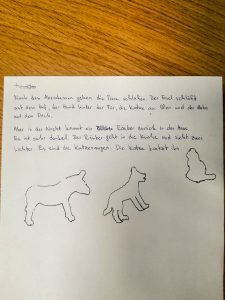 Nach dem Abendessen gehen die Tiere schlafen. Der Esel schläft
auf dem Hof, der Hund hinter der Tür, die Katze am Ofen und der Hahn
auf dem Dach.
Aber in der Nacht kommt ein Räuber zurück in das Haus.
Es ist ganz dunkel. Der Räuber geht in die Küche und sieht zwei
Lichter. Es sind die Katzenaugen. Die Katze kratzt ihn.